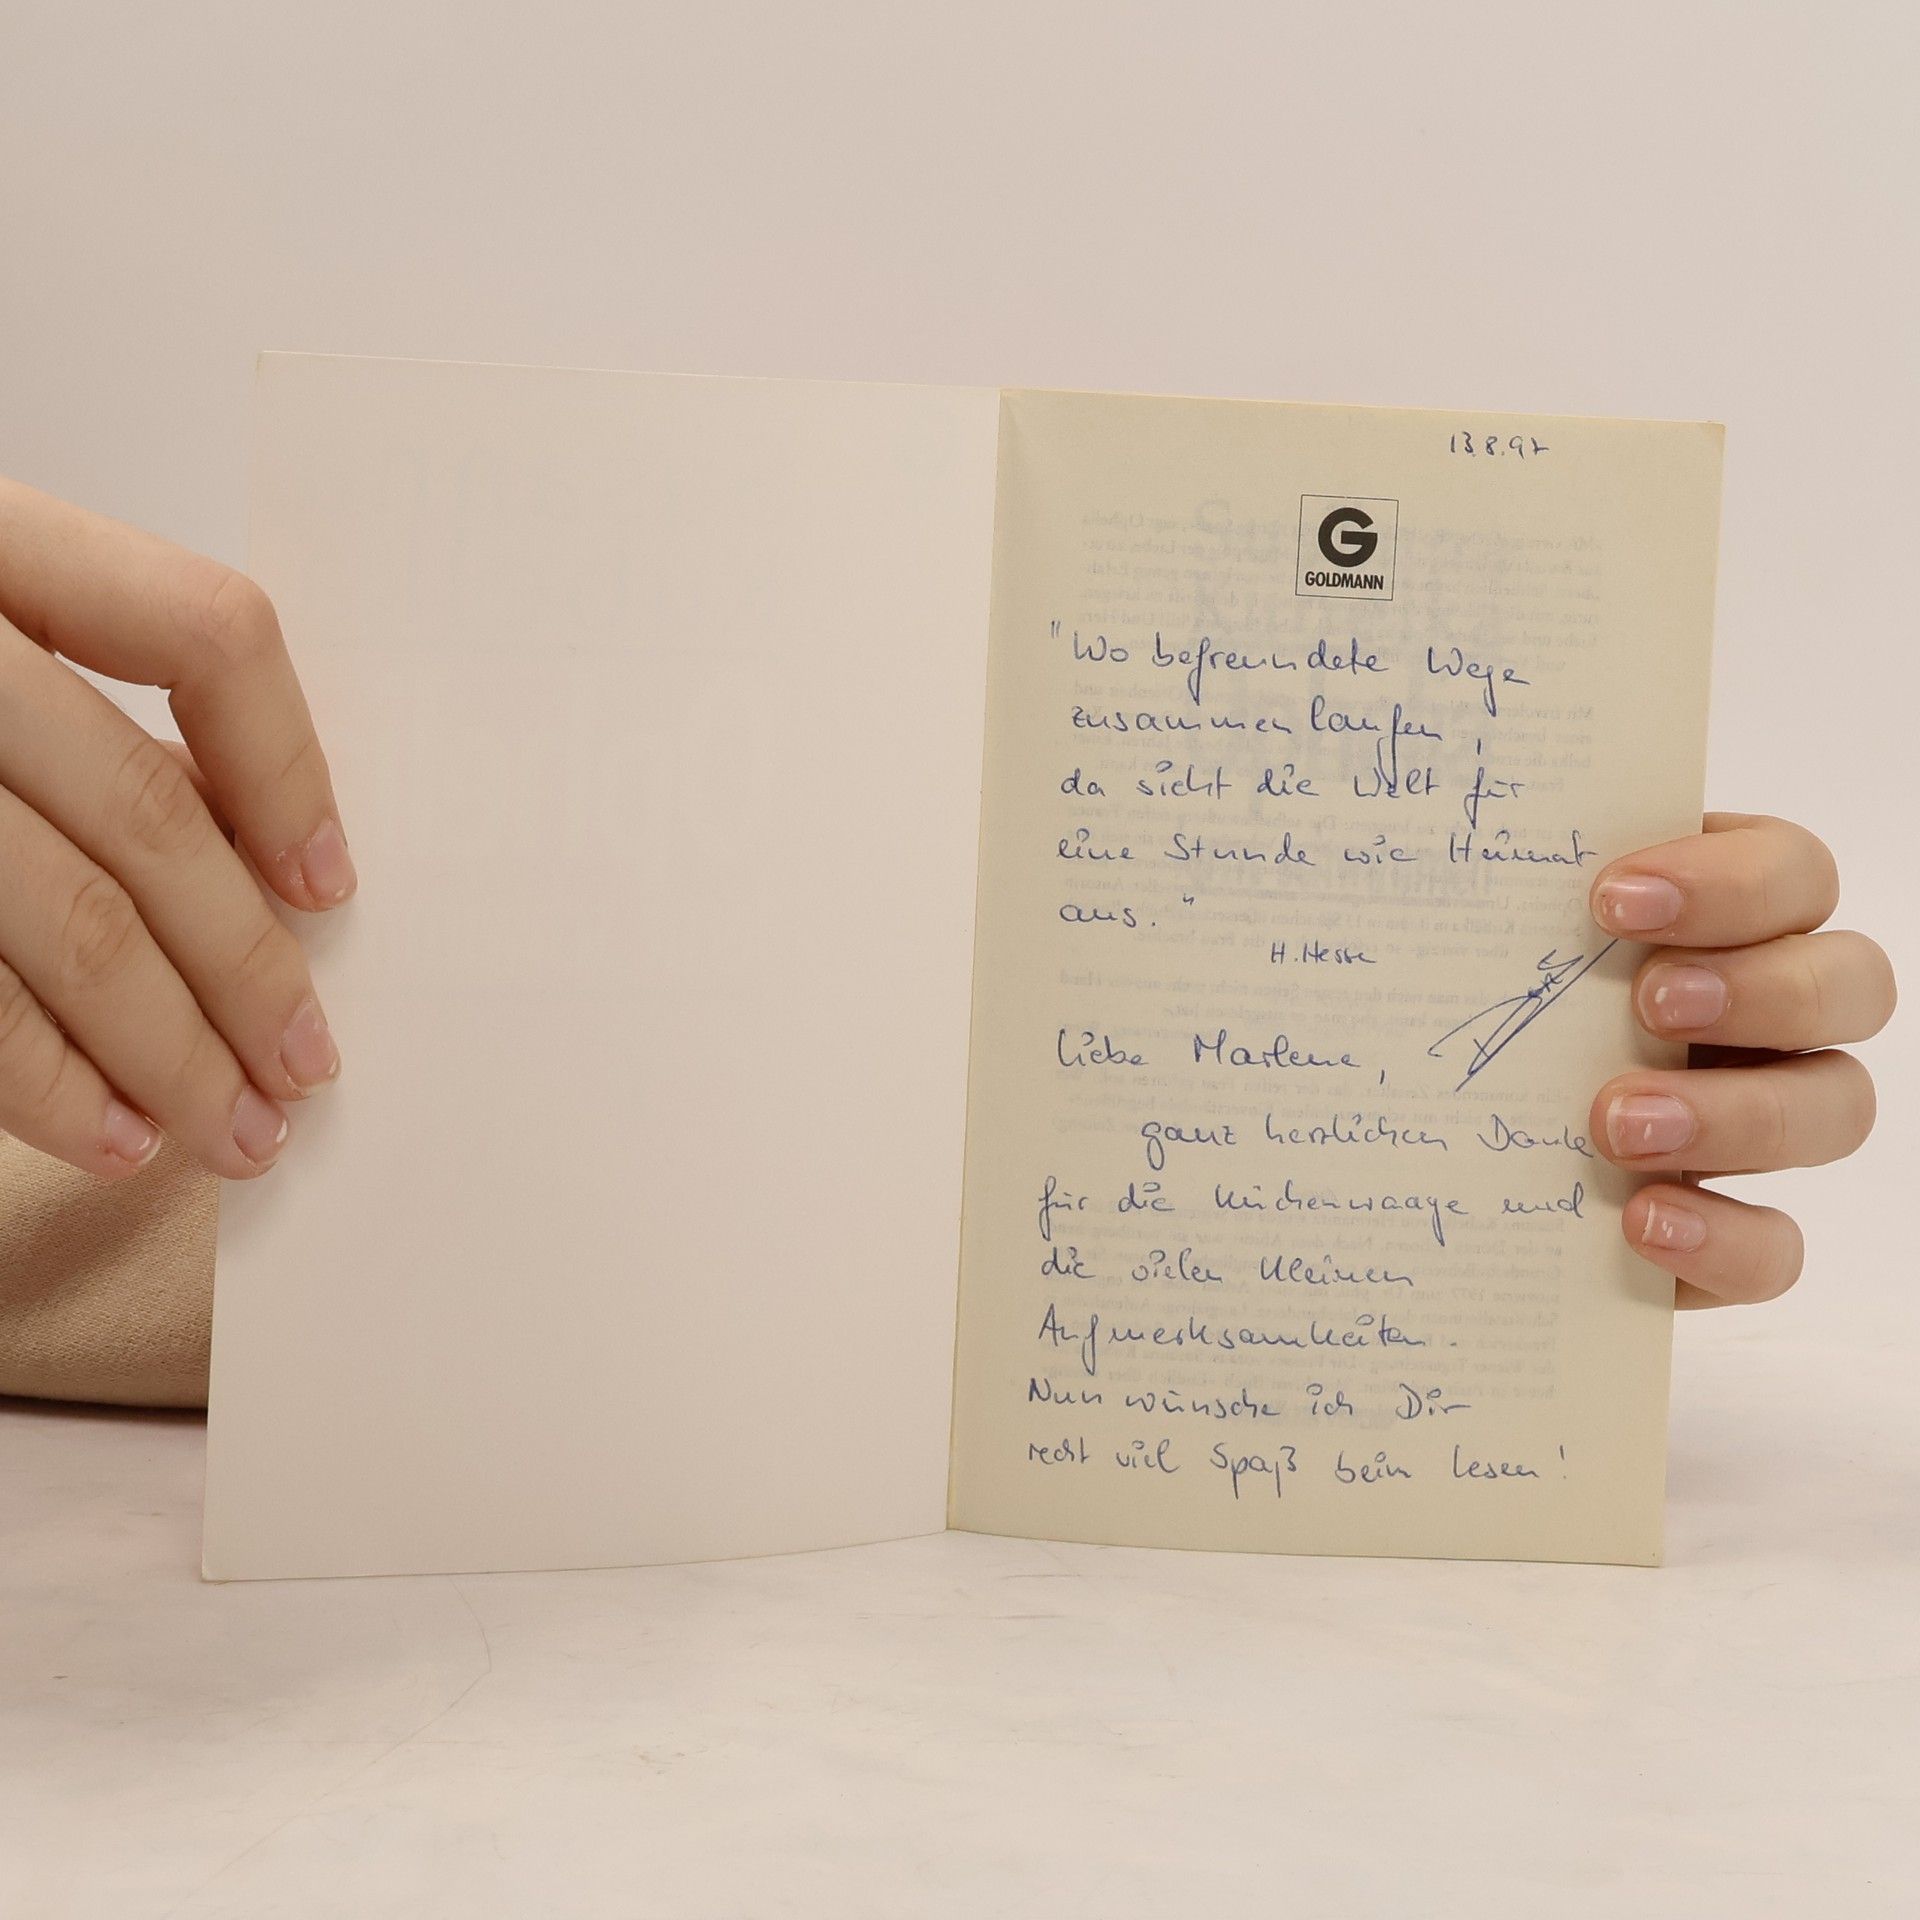 13.8.97
G
GOLDMANN
"Wo befreundete Wege
zusammenlaufen,
da sieht die Welt für
eine Stunde wie Heimat
aus."
H. Hesse
Liebe Marlene,
ganz herzlichen Danke
für die Küchenwaage und
die vielen kleinen
Aufmerksamkeiten.
Nun wünsche ich Dir
recht viel Spaß beim Lesen!